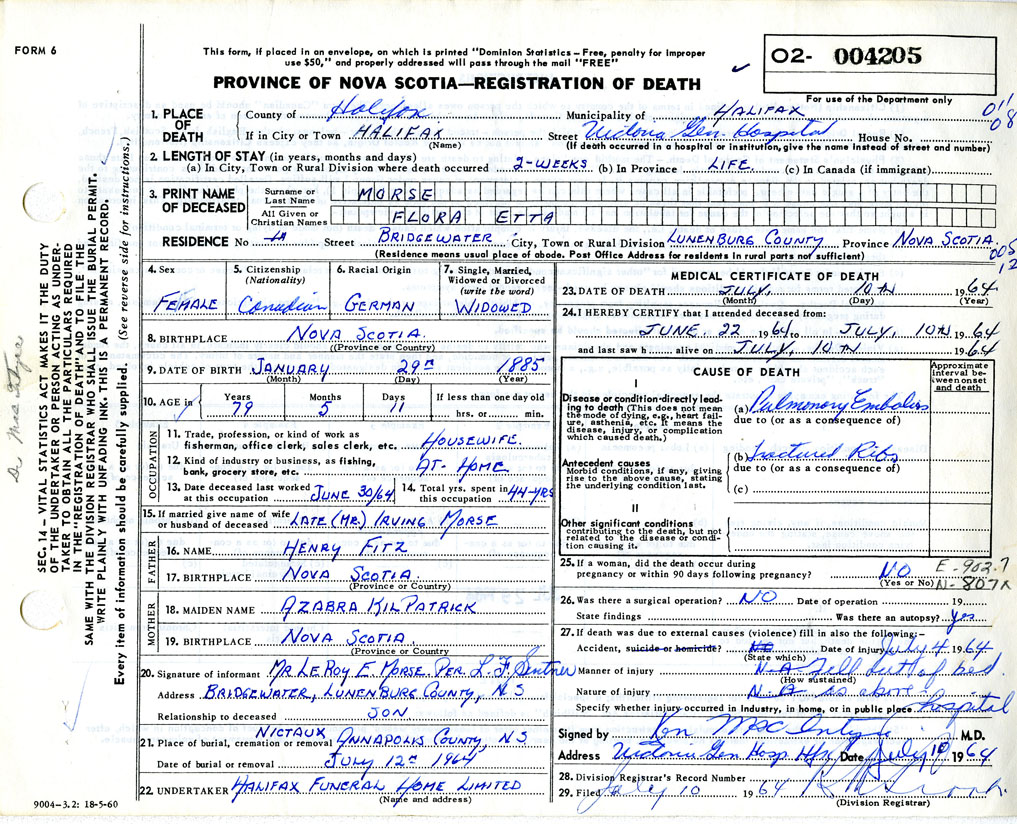 FORM 6
This form, if placed in an envelope, on which is printed "Dominion Statistics – Free, penalty for improper
use $50," and properly addressed will pass through the mail "FREE"
PROVINCE OF NOVA SCOTIA—REGISTRATION OF DEATH
O2- 004205
For use of the Department only
011
08
1. PLACE OF DEATH
County of Halifax Municipality of HALIFAX
If in City or Town HALIFAX Street Victoria Gen. Hospital House No.
(Name) (If death occurred in a hospital or institution, give the name instead of street and number)
2. LENGTH OF STAY (in years, months and days)
(a) In City, Town or Rural Division where death occurred 2-WEEKS (b) In Province LIFE. (c) In Canada (if immigrant)
3. PRINT NAME OF DECEASED
Surname or Last Name MORSE
All Given or Christian Names FLORA ETTA
RESIDENCE No Street BRIDGEWATER City, Town or Rural Division LUNENBURG COUNTY Province NOVA SCOTIA.
(Residence means usual place of abode. Post Office Address for residents in rural parts not sufficient)
005
12
4. Sex
FEMALE
5. Citizenship
(Nationality)
Canadian
6. Racial Origin
GERMAN
7. Single, Married,
Widowed or Divorced
(write the word)
WIDOWED
8. BIRTHPLACE NOVA SCOTIA.
(Province or Country)
9. DATE OF BIRTH JANUARY 29th 1885
(Month) (Day) (Year)
10. AGE in Years 79 Months 5 Days 11 If less than one day old
hrs. or min.
OCCUPATION
11. Trade, profession, or kind of work as
fisherman, office clerk, sales clerk, etc. HOUSEWIFE.
12. Kind of industry or business, as fishing,
bank, grocery store, etc. AT-HOME
13. Date deceased last worked
at this occupation JUNE 30/64
14. Total yrs. spent in
this occupation 44-YRS
15. If married give name of wife
or husband of deceased LATE (MR.) IRVING MORSE
FATHER
16. NAME HENRY FITZ
17. BIRTHPLACE NOVA SCOTIA.
(Province or Country)
MOTHER
18. MAIDEN NAME AZABRA KILPATRICK
19. BIRTHPLACE NOVA SCOTIA.
(Province or Country)
20. Signature of informant MR LEROY E. MORSE. PER L. F. Sentner
Address BRIDGEWATER, LUNENBURG COUNTY, N S
Relationship to deceased SON
21. Place of burial, cremation or removal NICTAUX ANNAPOLIS COUNTY, N S
Date of burial or removal JULY 12th 1964
22. UNDERTAKER HALIFAX FUNERAL HOME LIMITED
(Name and address)
9004–3.2: 18-5-60
MEDICAL CERTIFICATE OF DEATH
23. DATE OF DEATH JULY, 10TH 1964
(Month) (Day) (Year)
24. I HEREBY CERTIFY that I attended deceased from:
JUNE. 22 1964 to JULY, 10TH 1964
and last saw h alive on JULY, 10TH 1964
CAUSE OF DEATH
Approximate
interval be-
tween onset
and death
I
Disease or condition-directly lead-
ing to death (This does not mean
the mode of dying, e.g., heart fail-
ure, asthenia, etc. It means the
disease, injury, or complication
which caused death.)
(a) Pulmonary Embolus
due to (or as a consequence of)
Antecedent causes
Morbid conditions, if any, giving
rise to the above cause, stating
the underlying condition last.
(b) Fractured Ribs
due to (or as a consequence of)
(c)
II
Other significant conditions
contributing to the death, but not
related to the disease or condi-
tion causing it.
25. If a woman, did the death occur during
pregnancy or within 90 days following pregnancy? NO
(Yes or No)
E-902.7
N-807
26. Was there a surgical operation? NO Date of operation 19
State findings Was there an autopsy? Yes
27. If death was due to external causes (violence) fill in also the following:–
Accident, suicide or homicide? Date of injury July 4 1964
(State which)
Manner of injury N.A Fell out of bed
(How sustained)
Nature of injury N.A as above
Specify whether injury occurred in industry, in home, or in public place hospital
Signed by Ken MacIntyre M.D.
Address Victoria Gen Hosp Hfx Date July 10 1964
28. Division Registrar's Record Number
29. Filed July 10 1964
(Division Registrar)
SEC. 14 – VITAL STATISTICS ACT MAKES IT THE DUTY
OF THE UNDERTAKER OR PERSON ACTING AS UNDER-
TAKER TO OBTAIN ALL THE PARTICULARS REQUIRED
IN THE "REGISTRATION OF DEATH" AND TO FILE THE
SAME WITH THE DIVISION REGISTRAR WHO SHALL ISSUE THE BURIAL PERMIT.
WRITE PLAINLY WITH UNFADING INK. THIS IS A PERMANENT RECORD.
Every item of information should be carefully supplied. (See reverse side for instructions.)
Dr MacIntyre